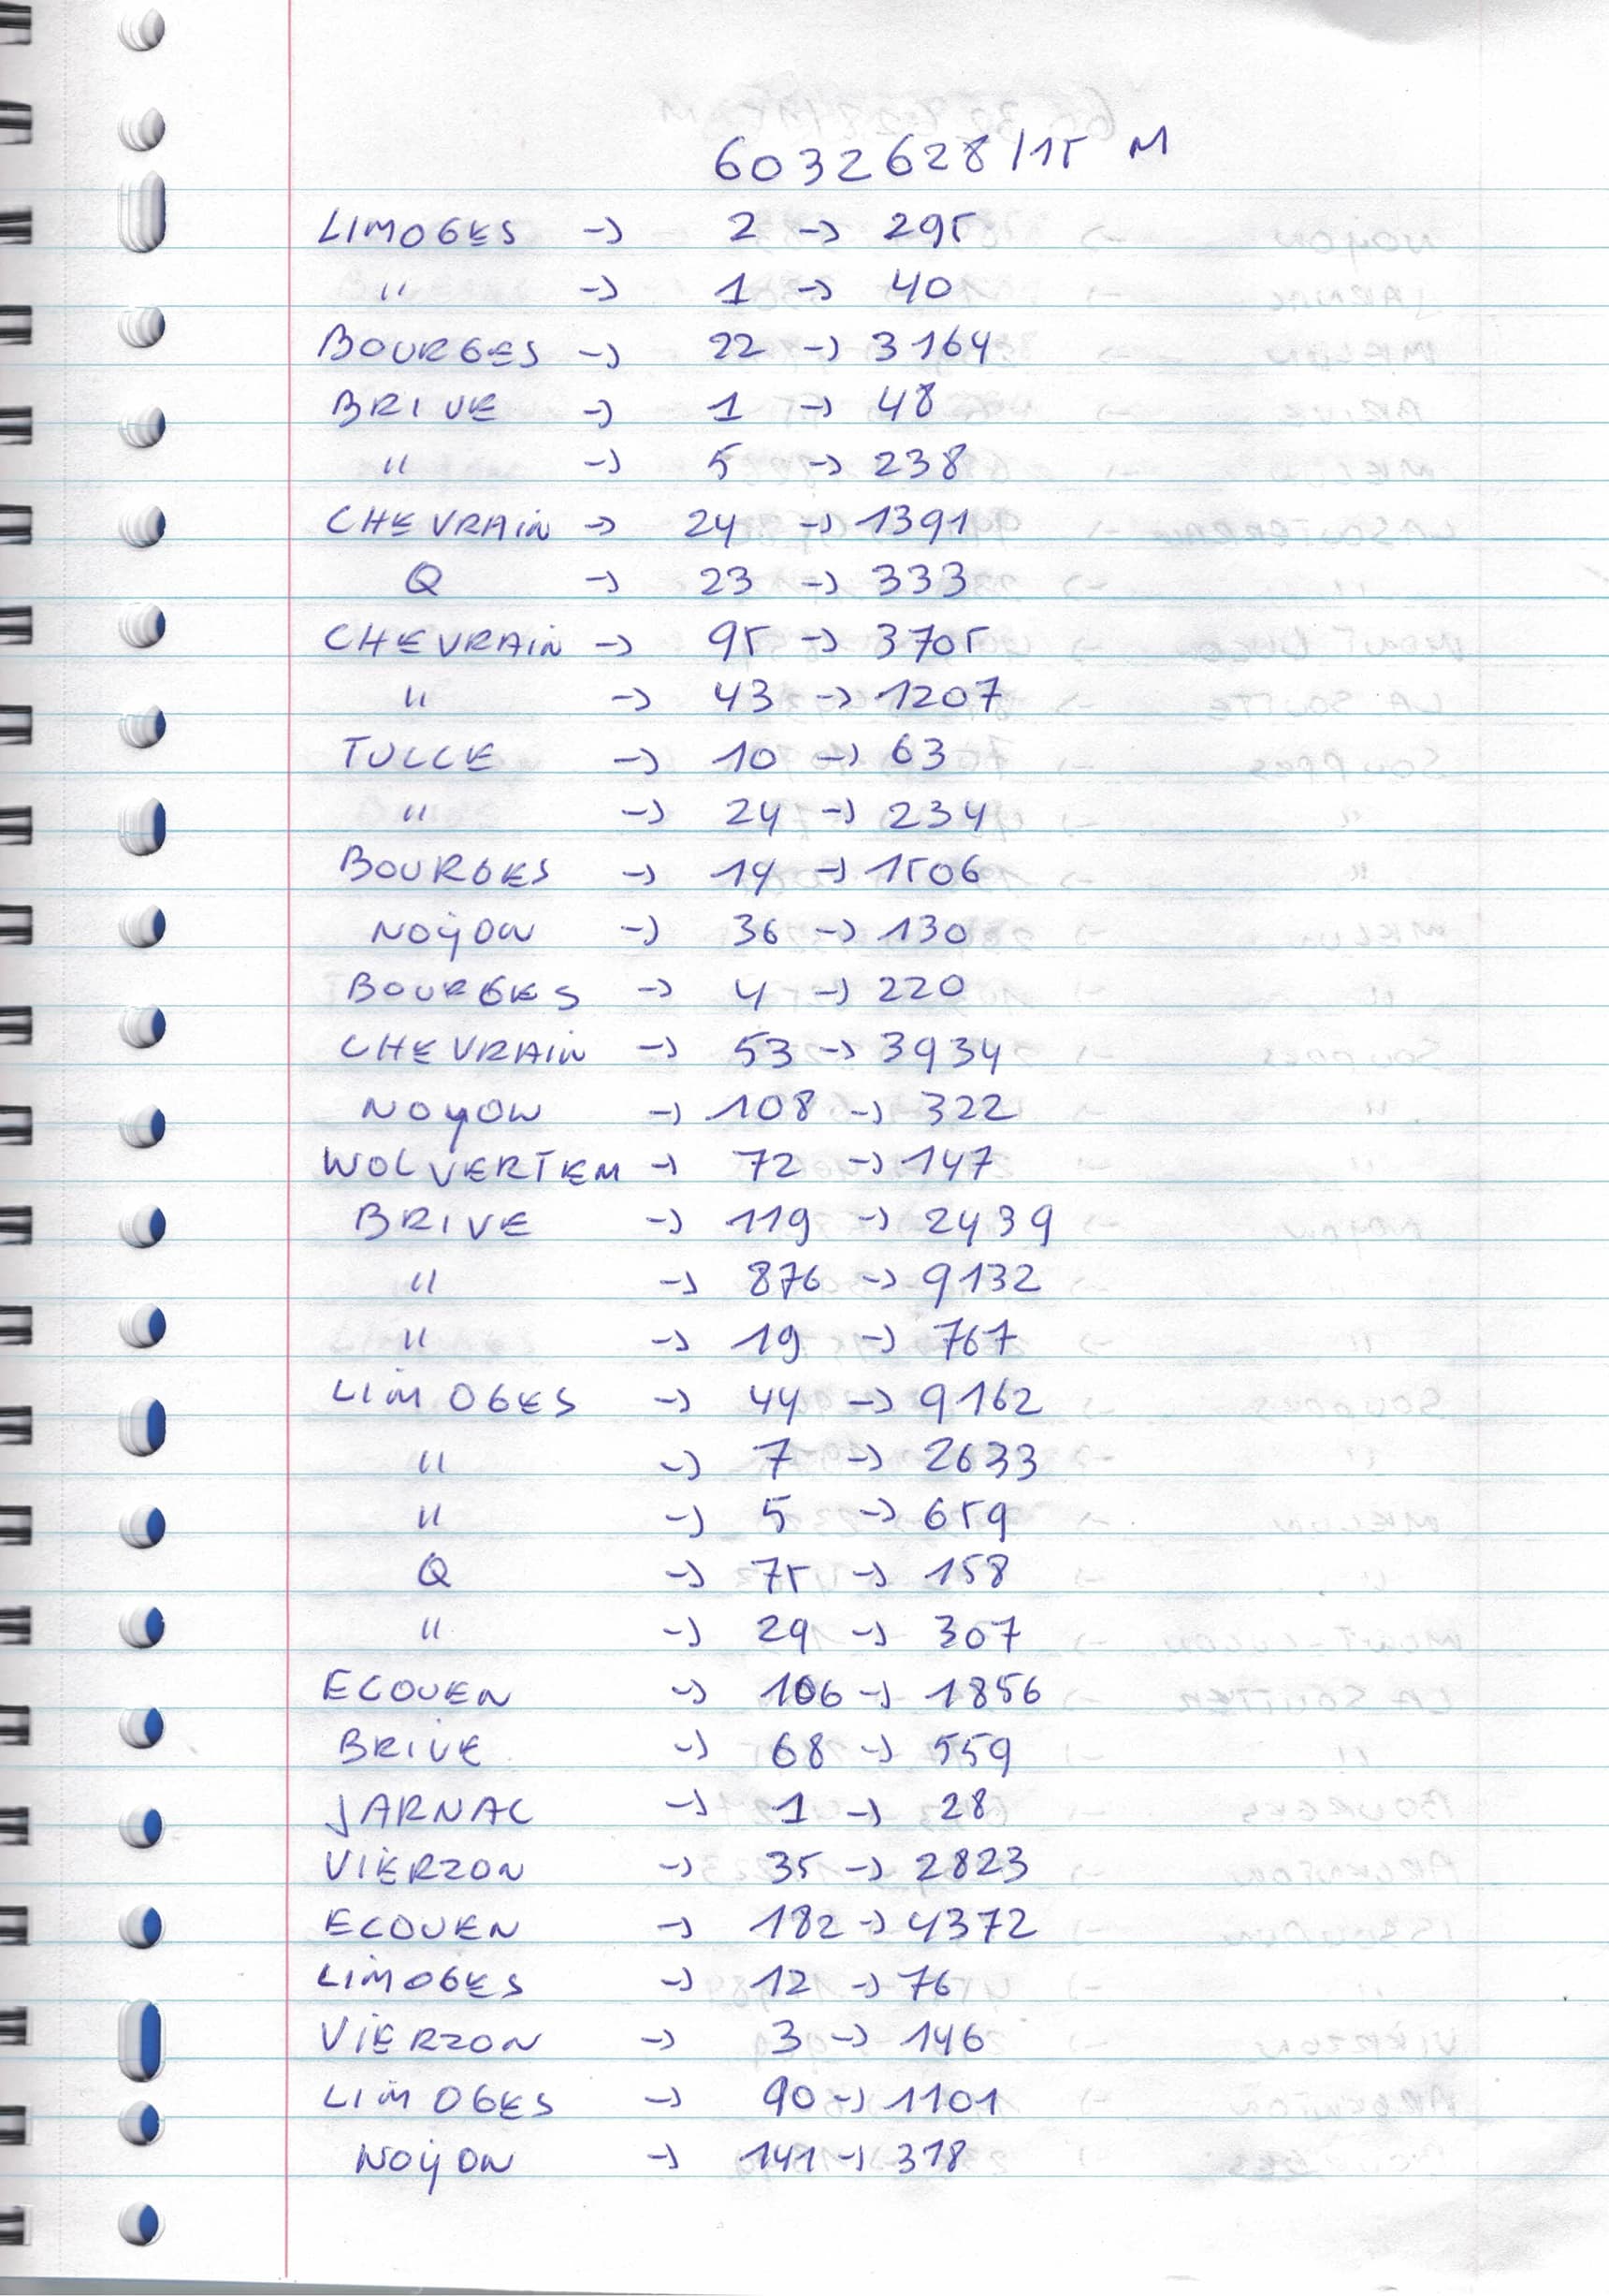 6032628/15 M
LIMOGES -> 2 -> 295
" -> 1 -> 40
BOURGES -> 22 -> 3164
BRIVE -> 1 -> 48
" -> 5 -> 238
CHEVRAIN -> 24 -> 1391
Q -> 23 -> 333
CHEVRAIN -> 95 -> 3705
" -> 43 -> 1207
TULLE -> 10 -> 63
" -> 24 -> 234
BOURGES -> 14 -> 1506
NOYON -> 36 -> 130
BOURGES -> 4 -> 220
CHEVRAIN -> 53 -> 3934
NOYON -> 108 -> 322
WOLVERTEM -> 72 -> 147
BRIVE -> 119 -> 2439
" -> 876 -> 9132
" -> 19 -> 767
LIMOGES -> 44 -> 9162
" -> 7 -> 2633
" -> 5 -> 659
Q -> 75 -> 158
" -> 29 -> 307
ECOUEN -> 106 -> 1856
BRIVE -> 68 -> 559
JARNAC -> 1 -> 28
VIERZON -> 35 -> 2823
ECOUEN -> 182 -> 4372
LIMOGES -> 12 -> 76
VIERZON -> 3 -> 146
LIMOGES -> 90 -> 1101
NOYON -> 141 -> 318